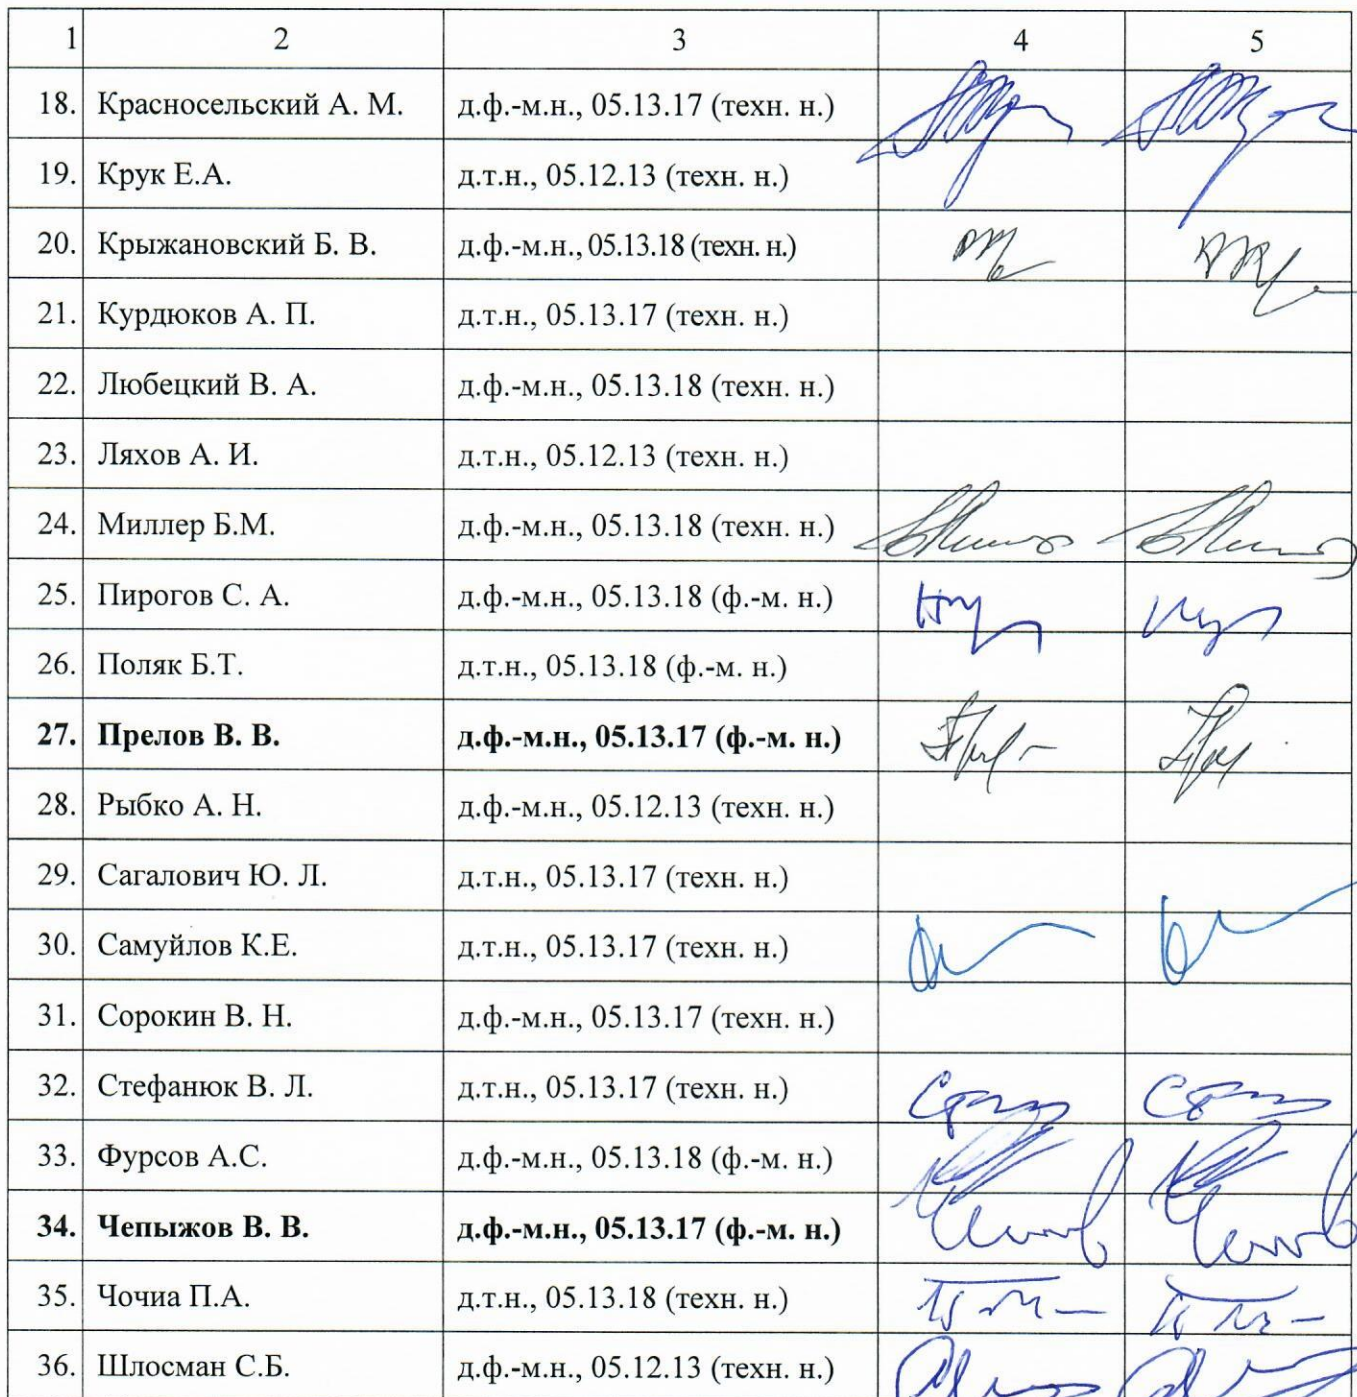 1 2 3 4 5
18. Красносельский А. М. д.ф.-м.н., 05.13.17 (техн. н.)
19. Крук Е.А. д.т.н., 05.12.13 (техн. н.)
20. Крыжановский Б. В. д.ф.-м.н., 05.13.18 (техн. н.)
21. Курдюков А. П. д.т.н., 05.13.17 (техн. н.)
22. Любецкий В. А. д.ф.-м.н., 05.13.18 (техн. н.)
23. Ляхов А. И. д.т.н., 05.12.13 (техн. н.)
24. Миллер Б.М. д.ф.-м.н., 05.13.18 (техн. н.)
25. Пирогов С. А. д.ф.-м.н., 05.13.18 (ф.-м. н.)
26. Поляк Б.Т. д.т.н., 05.13.18 (ф.-м. н.)
27. Прелов В. В. д.ф.-м.н., 05.13.17 (ф.-м. н.)
28. Рыбко А. Н. д.ф.-м.н., 05.12.13 (техн. н.)
29. Сагалович Ю. Л. д.т.н., 05.13.17 (техн. н.)
30. Самуйлов К.Е. д.т.н., 05.13.17 (техн. н.)
31. Сорокин В. Н. д.ф.-м.н., 05.13.17 (техн. н.)
32. Стефанюк В. Л. д.т.н., 05.13.17 (техн. н.)
33. Фурсов А.С. д.ф.-м.н., 05.13.18 (ф.-м. н.)
34. Чепыжов В. В. д.ф.-м.н., 05.13.17 (ф.-м. н.)
35. Чочиа П.А. д.т.н., 05.13.18 (техн. н.)
36. Шлосман С.Б. д.ф.-м.н., 05.12.13 (техн. н.)